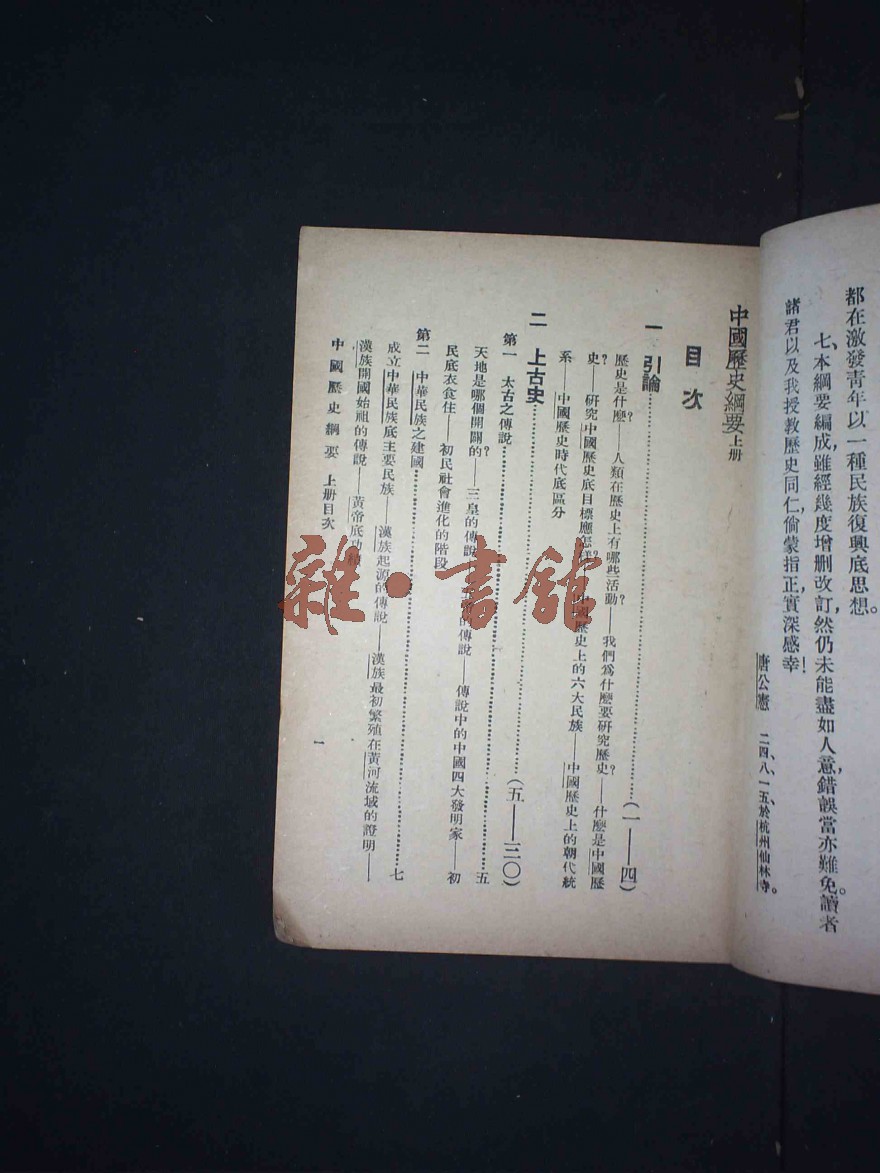 都在激發靑年以一種民族復興底思想。
七、本綱要編成，雖經幾度增删改訂，然仍未能盡如人意，錯誤當亦難免。讀者
諸君以及我授敎歷史同仁，倘蒙指正，實深感幸！
唐公憲　二四、八、一五、於杭州仙林寺。
中國歷史綱要上册
目次
一　引論……（一——四）
歷史是什麽？——人類在歷史上有哪些活動？——我們爲什麽要研究歷史？——什麽是中國歷
史？——研究中國歷史底目標應怎樣？——中國歷史上的六大民族——中國歷史上的朝代統
系——中國歷史時代底區分
二　上古史……（五——三〇）
第一　太古之傳說……五
天地是哪個開闢的——三皇的傳說——的傳說——傳說中的中國四大發明家——初
民底衣食住——初民社會進化的階段
第二　中華民族之建國……七
成立中華民族底主要民族——漢族起源的傳說——漢族最初繁殖在黃河流域的證明——
漢族開國始祖的傳說——黃帝底功
中國歷史綱要　上册目次　一
雜·書館